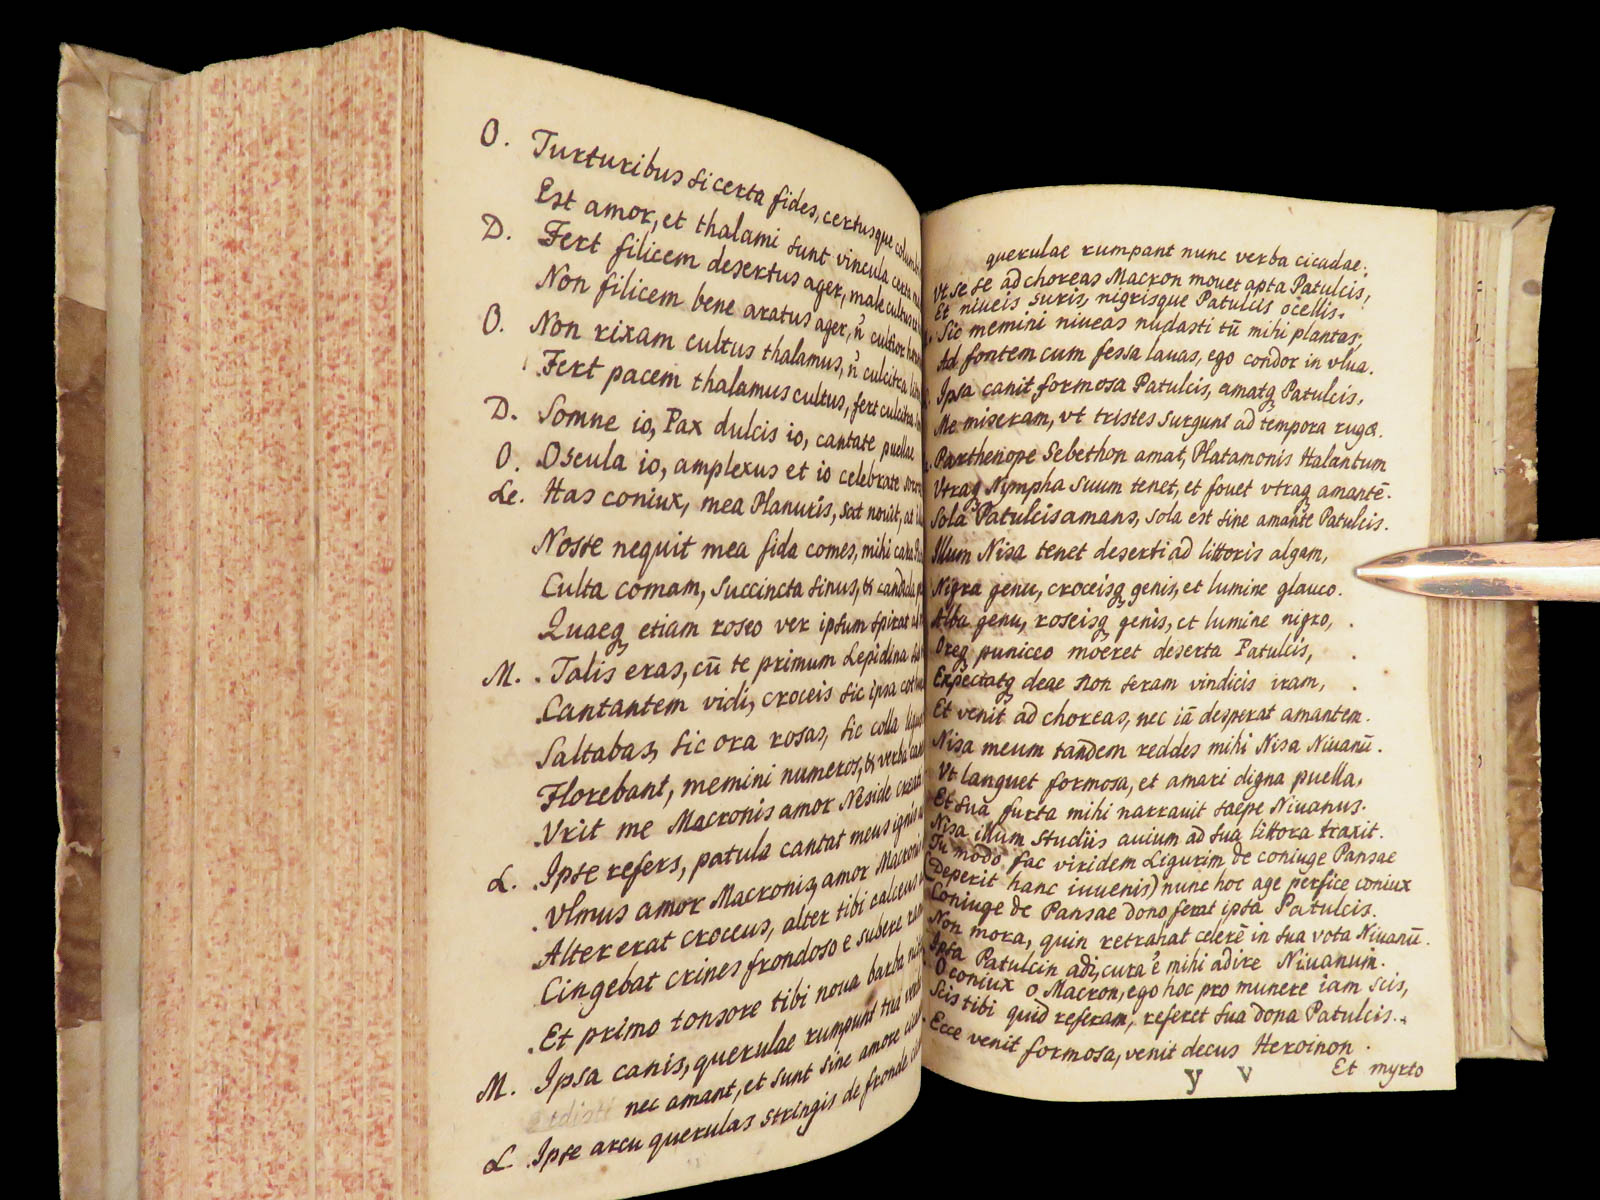 O. Turturibus si certa fides, certusque
Est amor, et thalami sunt vincula certa
D. Fert filicem desertus ager, male cultus
Non filicem bene aratus ager, ñ cultior
O. Non rixam cultus thalamus, ñ culcitra
Fert pacem thalamus cultus, fert culcitra
D. Somne io, Pax dulcis io, cantate puellae
O. Oscula io, amplexus et io celebrate
Le. Has coniux, mea Planuris, sat nouit, at
Nosse nequit mea fida comes, mihi cara
Culta comam, succincta sinus, & candida
Quaeq etiam roseo ver ipsum spirat
M. Talis eras, cū te primum Lepidina
Cantantem vidi, croceis sic ipsa
Saltabas, sic ora rosas, sic colla
Florebant, memini numeros, & verba
Vrit me Macronis amor Neside
L. Ipse refers, patula cantat meus ignis
Vlmus amor Macronis, amor Macroni
Alter erat croceus, alter tibi calceus
Cingebat crines frondoso e subere
Et primo tonsore tibi noua barba
M. Ipsa canis, querulae rumpunt tua
nec amant, et sunt sine amore
L. Ipse arcu querulas stringis de fronde
querulae rumpant nunc verba cicadae.
Vt se se ad choreas Macron mouet apta Patulcis,
Et niueis suris, nigrisque Patulcis ocellis.
Sic memini niueas nudasti tū mihi plantas,
Ad fontem cum fessa lauas, ego condor in vlua.
Ipsa canit formosa Patulcis, amatq Patulcis,
Me miseram, vt tristes surgunt ad tempora rugæ.
Parthenope Sebethon amat, Platamonis Halantum
Vtraq Nympha suum tenet, et fouet vtraq amantē.
Sola Patulcis amans, sola est sine amante Patulcis.
Illum Nisa tenet deserti ad littoris algam,
Nigra genu, croceisq genis, et lumine glauco.
Alba genu, roseisq genis, et lumine nigro,
Oreq puniceo moeret deserta Patulcis,
Expectatq deae non seram vindicis iram,
Et venit ad choreas, nec iā desperat amantem.
Nisa meum tandem reddes mihi Nisa Niuanū.
Vt languet formosa, et amari digna puella,
Et sua furta mihi narrauit saepe Niuanus.
Nisa illum studiis auium ad sua littora traxit.
Tu modo fac viridem Ligurim de coniuge Pansae
(Deperit hanc iuuenis) nunc hoc age perfice coniux
Coniuge de Pansae dono ferat ipsa Patulcis.
Non mora, quin retrahat celerē in sua vota Niuanū.
Ipsa Patulcin adi, cura é mihi adire Niuanum.
O coniux o Macron, ego hoc pro munere iam scis,
Scis tibi quid referam, referet sua dona Patulcis.
Ecce venit formosa, venit decus Heroinon.
y v
Et myrto